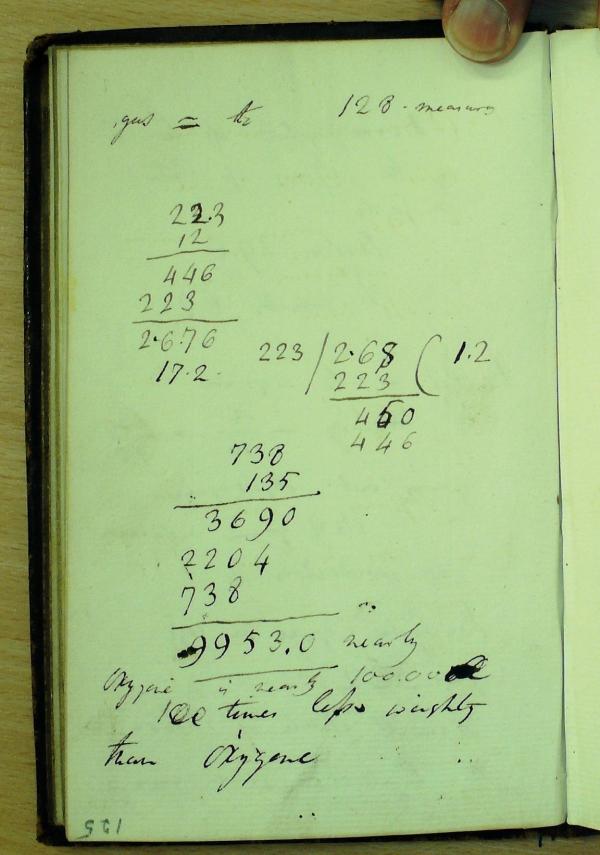 gas = the 128 - measures
223
12
446
223
2.676
17.2
223 / 2.68 ( 1.2
223
450
446
738
135
3690
2204
738
9953.0 nearly
Oxygene is nearly 100.00
100 times less weighty
than Oxygene
125